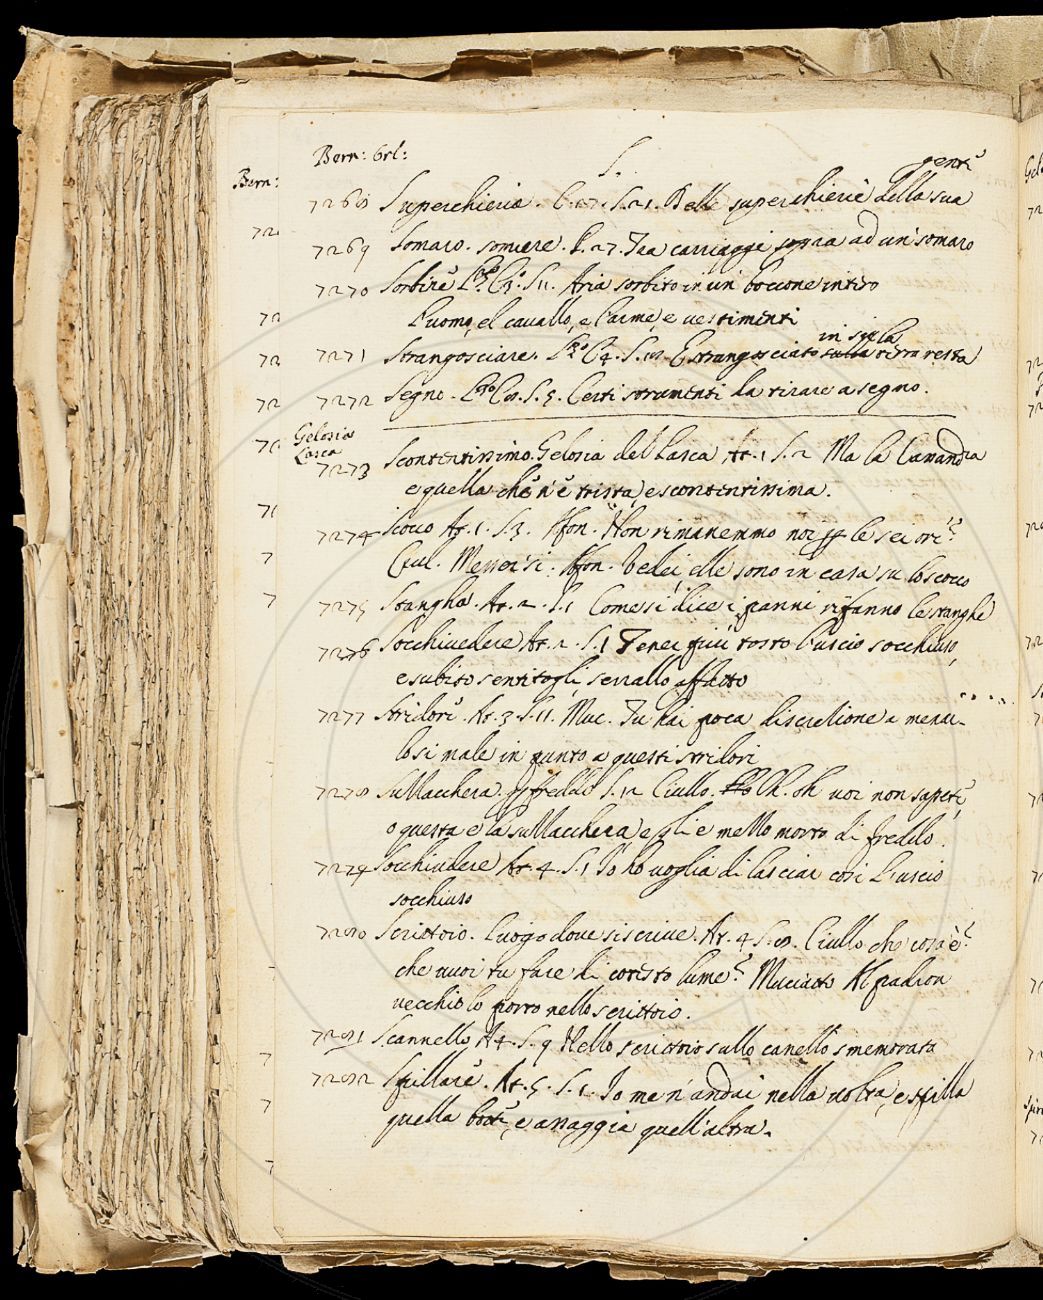 Bern: Orl:
S.
genti
7268 Superchieria. C. 27. S. 21. Belle superchierie della sua
7269 Somaro. somiere. C. 27. Tra carriaggi sopra ad un somaro
7270 Sorbire C. 9. S. 11. Aria sorbito in un boccone intiero
L'uomo, el cavallo, e l'arme, e vestimenti
in su la
7271 Strangosciare. C. 4. S. Estrangosciato sulla terra resta
7272 Segno. S. 5. Certi strumenti da tirare a segno.
Gelosia
Lasca
7273 Scontentissimo. Gelosia del Lasca At. 1 S. 2 Ma la Cassandra
e quella che n'è trista, e scontentissima.
7274 Scocco At. 1. S. 3. Alfon. Non rimanemmo noi per le sei ore?
Ciul. Messer si. Alfon. Vedi, elle sono in casa su lo scocco
7275 Stangha. At. 2. S. 1 Come si dice i panni rifanno le stanghe
7276 Socchiudere At. 2. S. 1 Tenei più tosto l'uscio socchiuso,
e subito sentitogli, serrallo affatto
7277 Stridori. At. 3. S. 11. Muc. Tu hai poca discretione a menar-
losi male in punto a questi stridori
7278 Sullacchera. freddo S. 12 Ciullo. Oh. oh voi non sapete,
o questa e la sullacchera, egli e mezzo morto di freddo.
7279 Socchiudere At. 4. S. 1 Io ho voglia di lasciar così l'uscio
socchiuso
7280 Scrittoio. Luogo dove si scrive. At. 4 S. Ciullo che cosa è?
che vuoi tu fare di cotesto lume? Muciatto Al padron
vecchio lo porto nello scrittoio.
7281 Scannello At. 4. S. 9 Nello scrittoio sullo canello smemorata
7282 Spillare. At. 5. S. 1. Io me n'andai nella volta, e spilla
quella botte, e assaggia quell'altra.